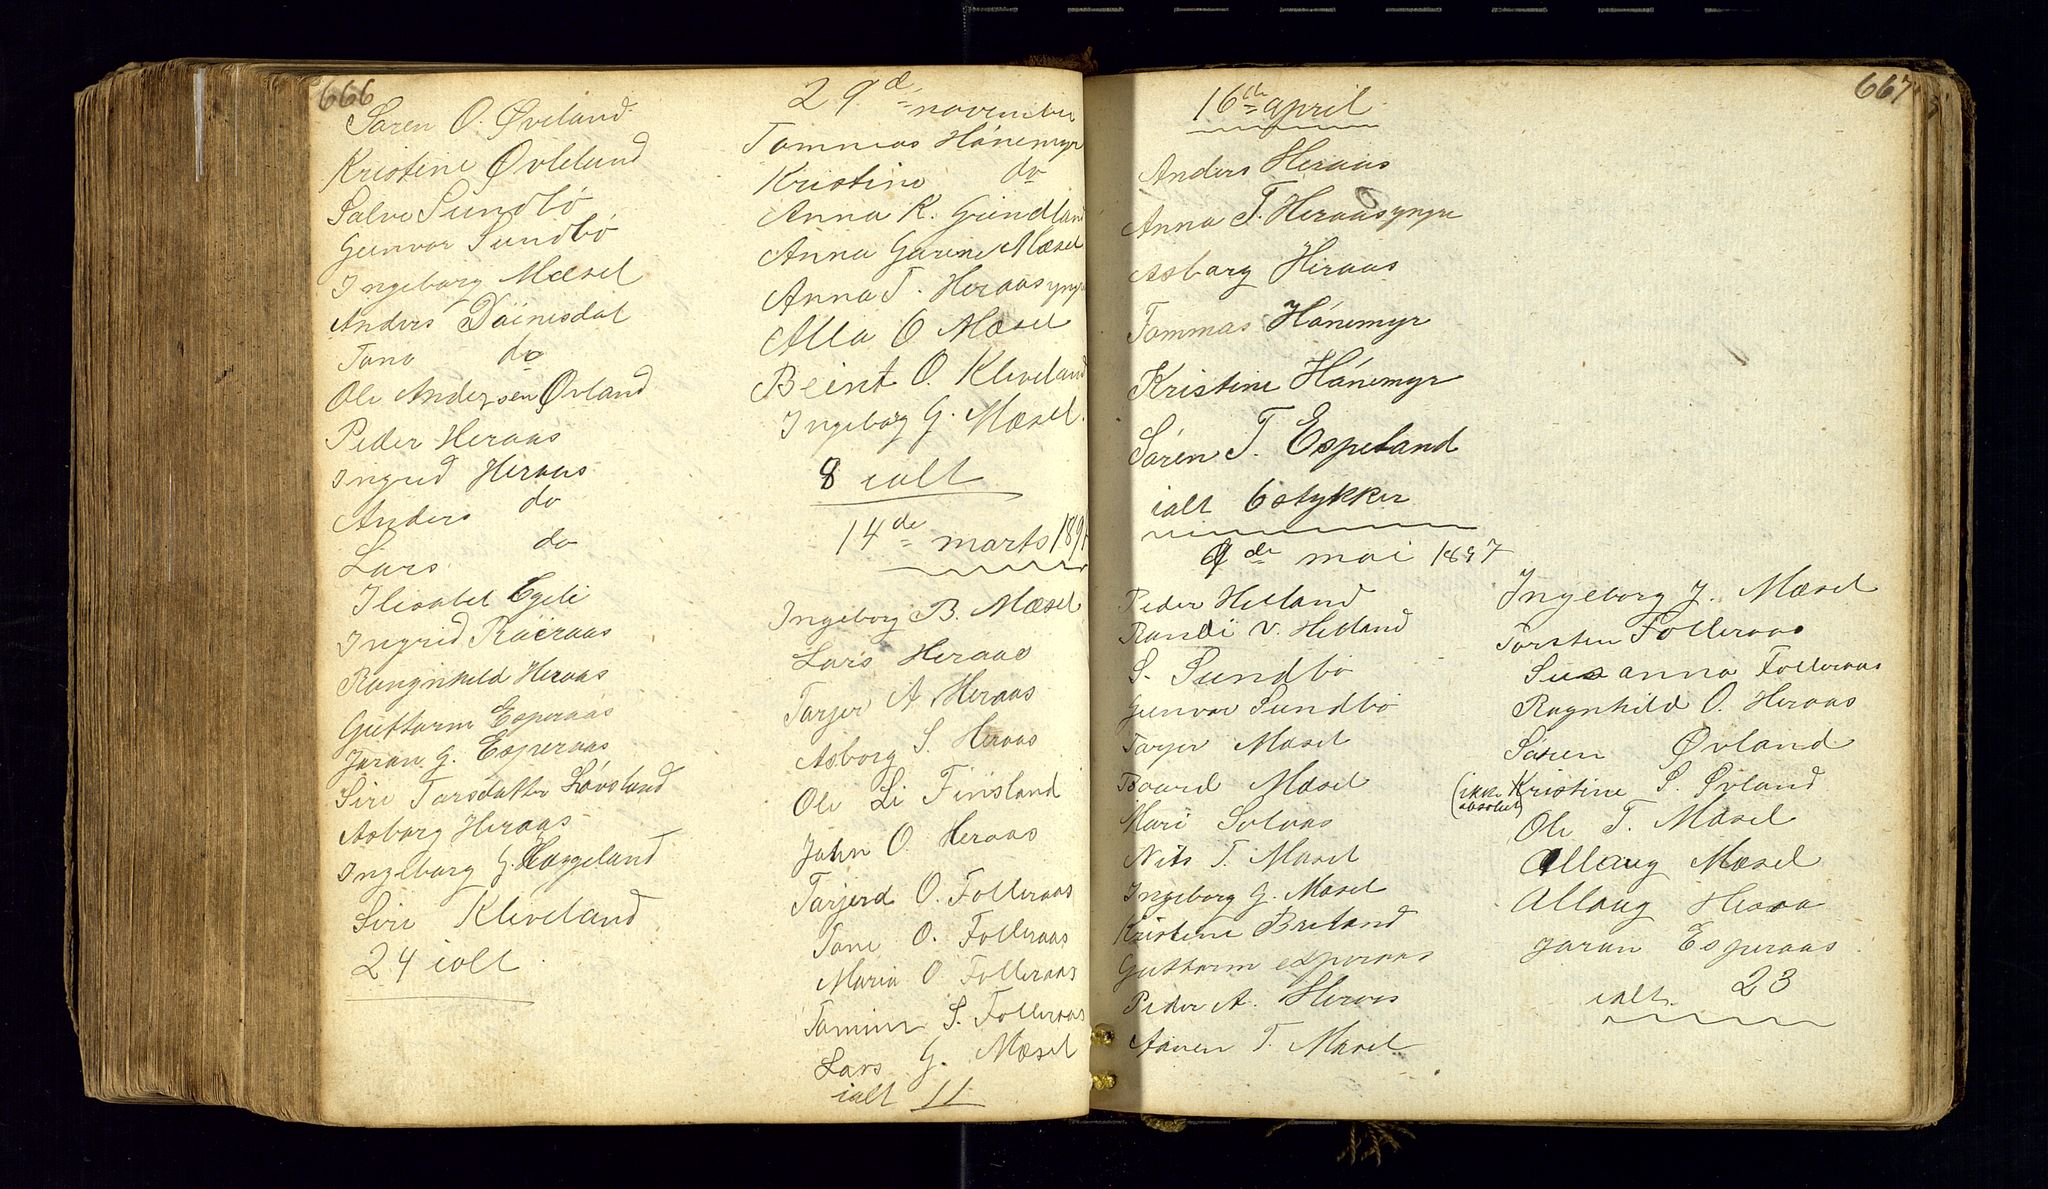 666
Søren O. Øveland
Kristine Øvleland
Salve Sundbø
Gunvor Sundbø
Ingeborg Mæsel
Anders Döinesdal
Tone do
Ole Andersen Øvland
Peder Heraas
Ingrid Heraas
Anders do
Lars do
Ilisabet Egeli
Ingrid Räeraas
Rangnhild Heraas
Guttorm Esperaas
Jøran G. Esperaas
Siri Tarsdatter Løvsland
Asborg Heraas
Ingeborg G. Haggeland
Siri Kleveland
24 ialt
29de november
Tommas Hånemyr
Kristine do
Anna K. Grindland
Anna Gurine Mæsel
Anna T. Heraas yngre
Alla O Mæsel
Beint O. Kleveland
Ingeborg G. Mæsel.
8 ialt
14de marts 189
Ingeborg B. Mæsel
Lars Heraas
Tarjer A. Heraas
Asborg S. Heraas
Ole Li Finsland
John O. Heraas
Tarjerd O. Folleraas
Tone O. Folleraas
Maria O. Folleraas
Tomine S. Folleraas
Lars G. Mæsel
ialt 11
667
16de april
Anders Heraas
Anna T. Heraas yngre
Asborg Heraas
Tommas Hånemyr
Kristine Hånemyr
Søren T. Espeland
ialt 6 stykker
9de mai 1897
Peder Helland
Randi V. Helland
S. Sundbø
Gunvor Sundbø
Tarjer Mæsel
Baard Mæsel
Mari Solaas
Nils T. Mæsel
Ingeborg G. Mæsel
Kristine Breland
Guttorm esperaas
Peder A. Heraas
Aanen T. Mæsel
Ingeborg J. Mæsel
Torsten Folleraas
Susanna Folleraas
Ragnhild O. Heraas
Søren Øvland
(ikke absolut) Kristine S. Øvland
Ole T. Mæsel
Allaug Mæsel
Allaug Heraa
Jøran Esperaas
ialt. 23